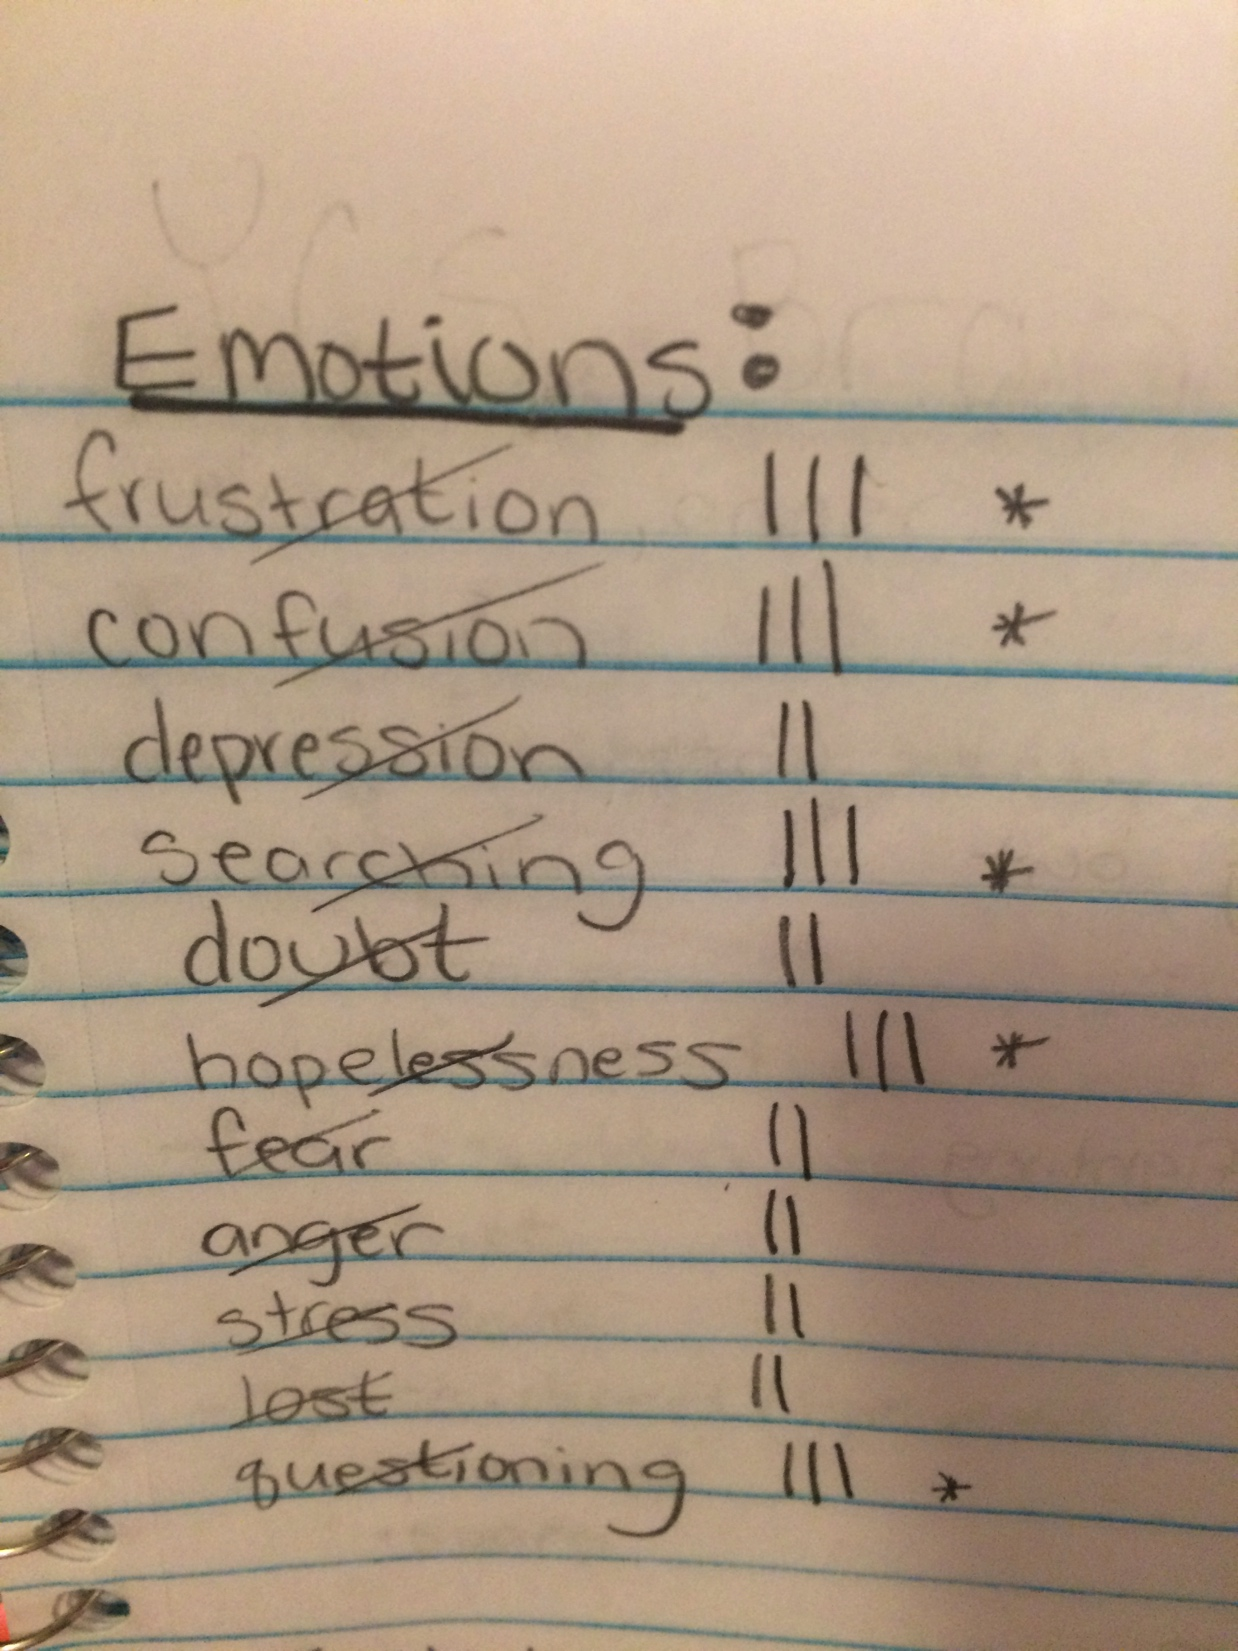 Emotions:
frustration ||| *
confusion ||| *
depression ||
searching ||| *
doubt ||
hopelessness ||| *
fear ||
anger ||
stress ||
lost ||
questioning ||| *